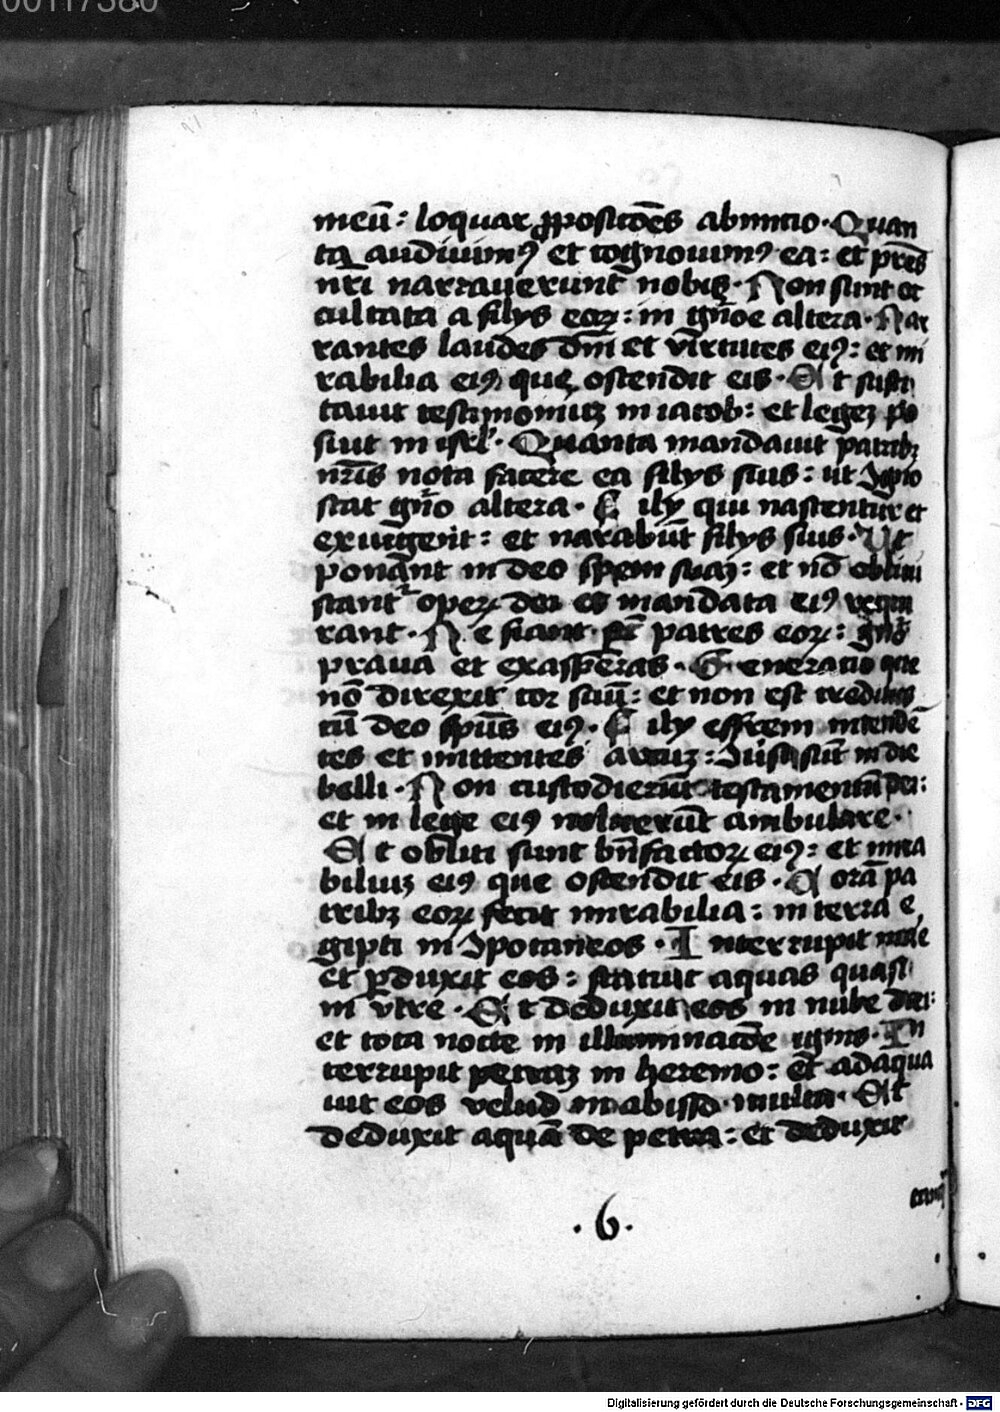 00117380
meū: loquar ꝓposicōēs ab inicio. Quan
ta audiuimꝰ et cognouimꝰ ea: et pr̄es
nr̄i narrauerunt nobis. Non sunt oc
cultata a filijs eoꝝ: in gn̄oe altera. Nar
rantes laudes dn̄i et v̄irtutes eiꝰ: et mi
rabilia eiꝰ que ostendit eis. Et susci
tauit testimoniuꝫ in iacob: et legeꝫ po
suit in isrl̄. Quanta mandauit patribꝫ
nr̄is nota facere ea filijs suis: ut ꝯgno
scat gn̄o altera. Filij qui nascentur et
exurgent: et narabūt filijs suis. Ut
ponant in deo spem suaꝫ: et nō obliui
scant᷑ opeꝝ dei et mandata eiꝰ requi
rant. Ne fiant sic̄ patres eoꝝ: gn̄o
praua et exasperās. Generatio que
nō direxit cor suū: et non est credituꝫ
cū deo spūs eiꝰ. Filij effrem intendē
tes et mittentes arcuꝫ: ꝯuersi sūt in die
belli. Non custodierūt testamentū dei:
et in lege eiꝰ noluerūt ambulare.
Et obliti sunt bn̄factoꝝ eiꝰ: et mira
biliuꝫ eiꝰ que ostendit eis. Corā pa
tribꝫ eoꝝ fecit mirabilia: in terra e
gipti in ꝯpo taneos. Interrupit mare
et ꝑduxit eos: statuit aquas quasi
in v̄tre. Et deduxit eos in nube diei:
et tota nocte in illuminacōe ignis. In
terrupit petraꝫ in heremo: et adaqua
uit eos velud in abisso multa. Et
deduxit aquā de petra: et deduxit
.6.
Digitalisierung gefördert durch die Deutsche Forschungsgemeinschaft - DFG